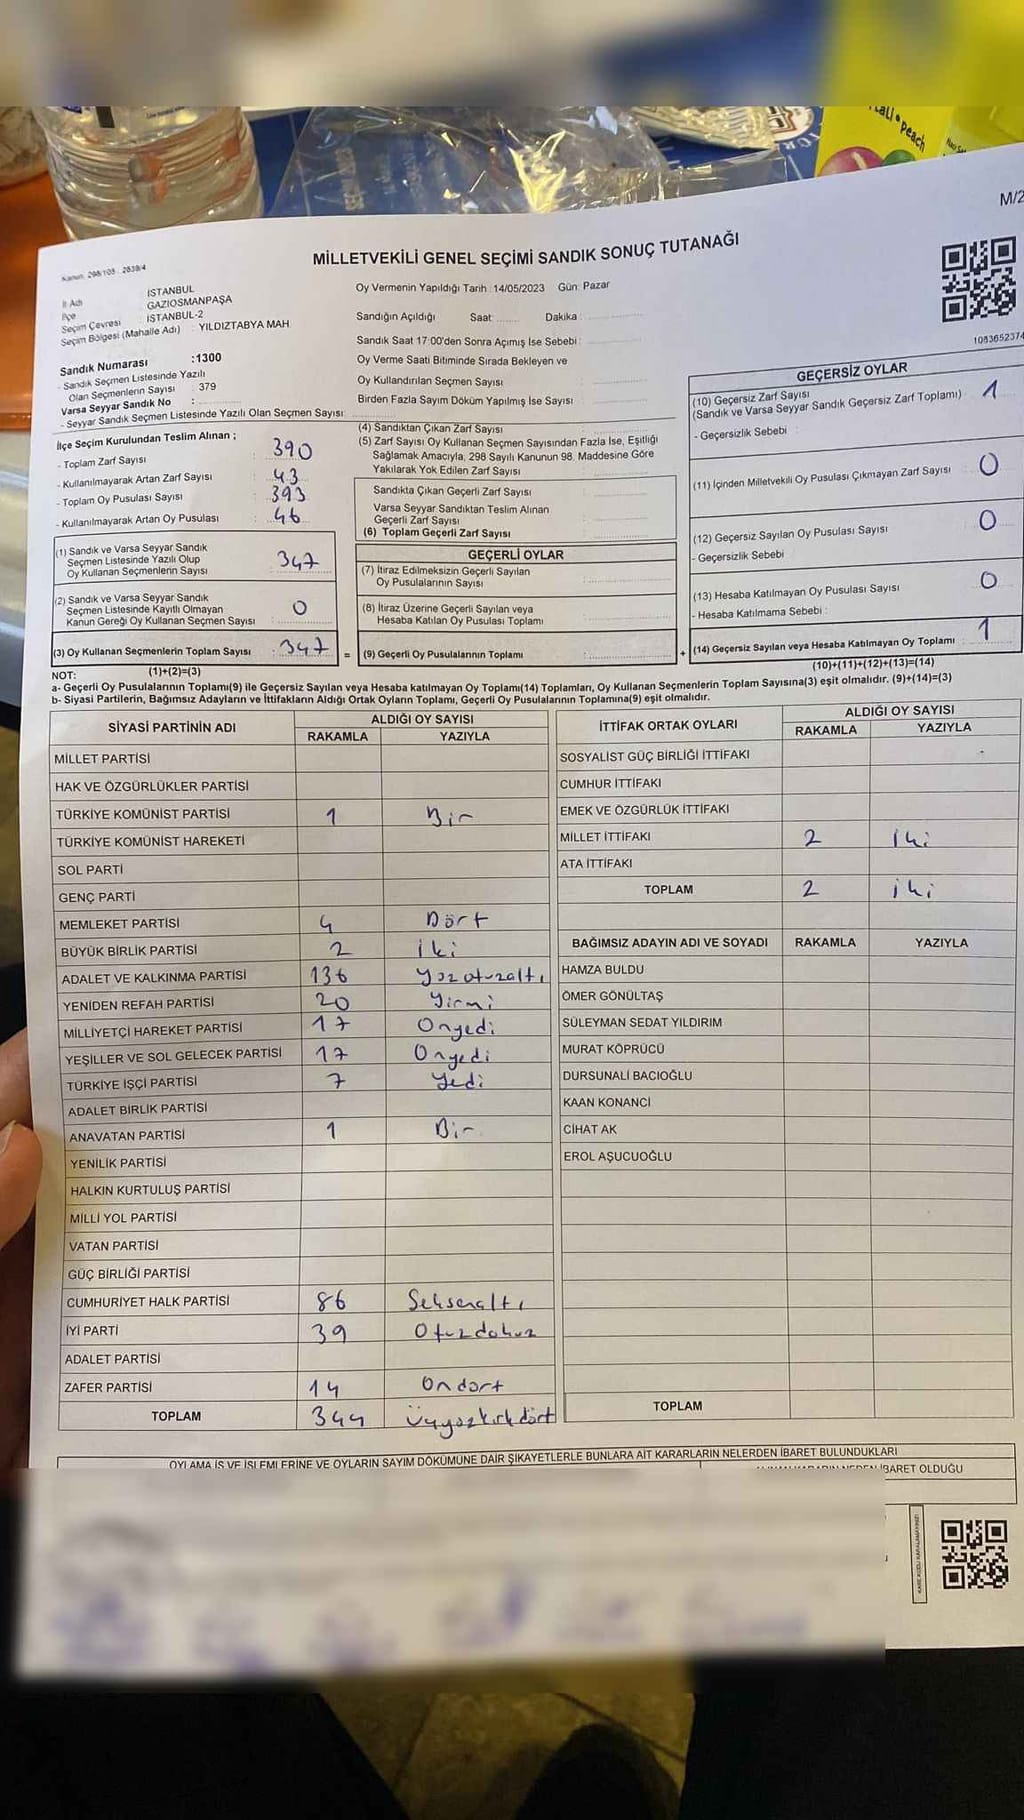 peach
M/2
Kanun: 298/105 - 2839/4
MİLLETVEKİLİ GENEL SEÇİMİ SANDIK SONUÇ TUTANAĞI
İl Adı : İSTANBUL
İlçe : GAZİOSMANPAŞA
Seçim Çevresi : İSTANBUL-2
Seçim Bölgesi (Mahalle Adı) : YILDIZTABYA MAH.
Sandık Numarası :1300
- Sandık Seçmen Listesinde Yazılı
Olan Seçmenlerin Sayısı : 379
Varsa Seyyar Sandık No :
- Seyyar Sandık Seçmen Listesinde Yazılı Olan Seçmen Sayısı:
İlçe Seçim Kurulundan Teslim Alınan ;
- Toplam Zarf Sayısı : 390
- Kullanılmayarak Artan Zarf Sayısı : 43
- Toplam Oy Pusulası Sayısı : 393
- Kullanılmayarak Artan Oy Pusulası : 46
(1) Sandık ve Varsa Seyyar Sandık
Seçmen Listesinde Yazılı Olup
Oy Kullanan Seçmenlerin Sayısı : 347
(2) Sandık ve Varsa Seyyar Sandık
Seçmen Listesinde Kayıtlı Olmayan
Kanun Gereği Oy Kullanan Seçmen Sayısı : 0
(3) Oy Kullanan Seçmenlerin Toplam Sayısı : 347
(1)+(2)=(3)
Oy Vermenin Yapıldığı Tarih :14/05/2023 Gün: Pazar
Sandığın Açıldığı Saat: Dakika :
Sandık Saat 17:00'den Sonra Açımış İse Sebebi :
Oy Verme Saati Bitiminde Sırada Bekleyen ve
Oy Kullandırılan Seçmen Sayısı :
Birden Fazla Sayım Döküm Yapılmış İse Sayısı :
(4) Sandıktan Çıkan Zarf Sayısı :
(5) Zarf Sayısı Oy Kullanan Seçmen Sayısından Fazla İse, Eşitliği
Sağlamak Amacıyla, 298 Sayılı Kanunun 98. Maddesine Göre
Yakılarak Yok Edilen Zarf Sayısı :
Sandıkta Çıkan Geçerli Zarf Sayısı :
Varsa Seyyar Sandıktan Teslim Alınan
Geçerli Zarf Sayısı :
(6) Toplam Geçerli Zarf Sayısı :
GEÇERLİ OYLAR
(7) İtiraz Edilmeksizin Geçerli Sayılan
Oy Pusulalarının Sayısı :
(8) İtiraz Üzerine Geçerli Sayılan veya
Hesaba Katılan Oy Pusulası Toplamı :
= (9) Geçerli Oy Pusulalarının Toplamı : +
1083652374
GEÇERSİZ OYLAR
(10) Geçersiz Zarf Sayısı : 1
(Sandık ve Varsa Seyyar Sandık Geçersiz Zarf Toplamı)
- Geçersizlik Sebebi :
(11) İçinden Milletvekili Oy Pusulası Çıkmayan Zarf Sayısı : 0
(12) Geçersiz Sayılan Oy Pusulası Sayısı : 0
- Geçersizlik Sebebi :
(13) Hesaba Katılmayan Oy Pusulası Sayısı : 0
- Hesaba Katılmama Sebebi :
(14) Geçersiz Sayılan veya Hesaba Katılmayan Oy Toplamı : 1
(10)+(11)+(12)+(13)=(14)
NOT:
a- Geçerli Oy Pusulalarının Toplamı(9) ile Geçersiz Sayılan veya Hesaba katılmayan Oy Toplamı(14) Toplamları, Oy Kullanan Seçmenlerin Toplam Sayısına(3) eşit olmalıdır. (9)+(14)=(3)
b- Siyasi Partilerin, Bağımsız Adayların ve İttifakların Aldığı Ortak Oyların Toplamı, Geçerli Oy Pusulalarının Toplamına(9) eşit olmalıdır.
SİYASİ PARTİNİN ADI ALDIĞI OY SAYISI
RAKAMLA YAZIYLA
MİLLET PARTİSİ
HAK VE ÖZGÜRLÜKLER PARTİSİ
TÜRKİYE KOMÜNİST PARTİSİ 1 Bir
TÜRKİYE KOMÜNİST HAREKETİ
SOL PARTİ
GENÇ PARTİ
MEMLEKET PARTİSİ 4 Dört
BÜYÜK BİRLİK PARTİSİ 2 iki
ADALET VE KALKINMA PARTİSİ 136 Yüzotuzaltı
YENİDEN REFAH PARTİSİ 20 Yirmi
MİLLİYETÇİ HAREKET PARTİSİ 17 Onyedi
YEŞİLLER VE SOL GELECEK PARTİSİ 17 Onyedi
TÜRKİYE İŞÇİ PARTİSİ 7 Yedi
ADALET BİRLİK PARTİSİ
ANAVATAN PARTİSİ 1 Bir
YENİLİK PARTİSİ
HALKIN KURTULUŞ PARTİSİ
MİLLİ YOL PARTİSİ
VATAN PARTİSİ
GÜÇ BİRLİĞİ PARTİSİ
CUMHURİYET HALK PARTİSİ 86 Seksenaltı
İYİ PARTİ 39 Otuzdokuz
ADALET PARTİSİ
ZAFER PARTİSİ 14 Ondört
TOPLAM 344 Üçyüzkırkdört
İTTİFAK ORTAK OYLARI ALDIĞI OY SAYISI
RAKAMLA YAZIYLA
SOSYALİST GÜÇ BİRLİĞİ İTTİFAKI
CUMHUR İTTİFAKI
EMEK VE ÖZGÜRLÜK İTTİFAKI
MİLLET İTTİFAKI 2 iki
ATA İTTİFAKI
TOPLAM 2 iki
BAĞIMSIZ ADAYIN ADI VE SOYADI RAKAMLA YAZIYLA
HAMZA BULDU
ÖMER GÖNÜLTAŞ
SÜLEYMAN SEDAT YILDIRIM
MURAT KÖPRÜCÜ
DURSUNALİ BACIOĞLU
KAAN KONANCİ
CİHAT AK
EROL AŞUCUOĞLU
TOPLAM
OYLAMA İŞ VE İŞLEMLERİNE VE OYLARIN SAYIM DÖKÜMÜNE DAİR ŞİKAYETLERLE BUNLARA AİT KARARLARIN NELERDEN İBARET BULUNDUKLARI
İBARET OLDUĞU